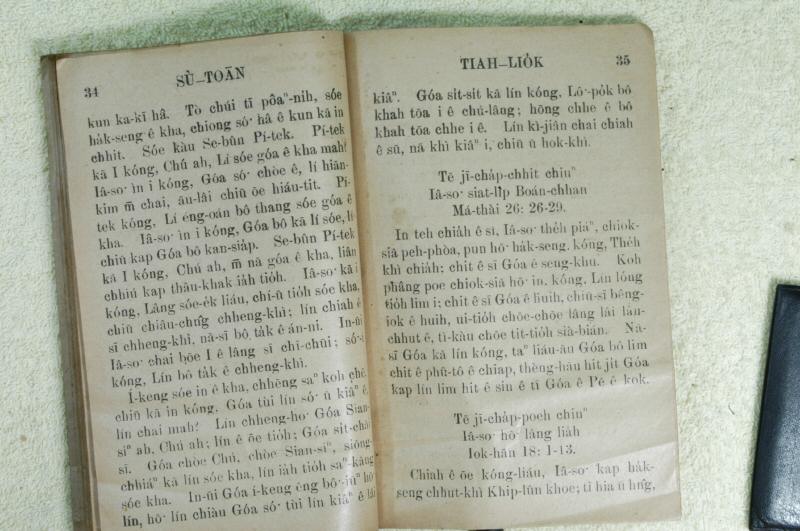 34
SÙ–TOĀN
kun ka-kī hâ. Tò chúi tī pôaⁿ-nih, sóe
ha̍k-seng ê kha, chiong só͘ hâ ê kun kā in
chhit. Sóe kàu Se-bûn Pí-tek. Pí-tek
kā I kóng, Chú ah, Lí sóe góa ê kha mah?
Iâ-so͘ ìn i kóng, Góa só͘ chòe ê, lí hiān-
kim m̄ chai, āu-lâi chiū ōe hiáu-tit. Pí-
tek kóng, Lí éng-oán bô thang sóe góa ê
kha. Iâ-so͘ ìn i kóng, Góa bô kā lí sóe, lí
chiū kap Góa bô kan-sia̍p. Se-bûn Pí-tek
kā I kóng, Chú ah, m̄ nā góa ê kha, liân
chhiú kap thâu-khak ia̍h tio̍h. Iâ-so͘ kā i
kóng, Lâng sóe-e̍k liáu, chí-ū tio̍h sóe kha,
chiū chiâu-chn̂g chheng-khì; lín chiah ê
sī chheng-khì, nā-sī bô ta̍k ê án-ni. In-ūi
Iâ-so͘ chai bōe I ê lâng sī chī-chūi; só͘-í
kóng, Lín bô ta̍k ê chheng-khì.
Í-keng sóe in ê kha, chhēng saⁿ koh chē,
chiū kā in kóng. Góa tùi lín só͘ ū kiâⁿ ê,
lín chai mah? Lín chheng-ho͘ Góa Sian-
siⁿ ah, Chú ah; lín ê ōe tio̍h; Góa sit-chāi
sī. Góa chòe Chú, chòe Sian-siⁿ, siōng-
chhiáⁿ kā lín sóe kha, lín ia̍h tio̍h saⁿ-kâng
sóe kha. In-ūi Góa í-keng êng bô͘-iūⁿ hō͘
lín, hō͘ lín chiàu Góa só͘ tùi lín kiâⁿ ê lâi
TIAH–LIO̍K
35
kiâⁿ. Góa si̍t-si̍t kā lín kóng, Lô͘-po̍k bô
khah tōa i ê chú-lâng; hōng chhe ê bô
khah tōa chhe i ê. Lín kì-jiân chai chiah
ê sū, nā khì kiâⁿ i, chiū ū hok-khì.
Tē jī-cha̍p-chhit chiuⁿ
Iâ-so͘ siat-li̍p Boán-chhan
Má-thài 26: 26-29.
In teh chia̍h ê sî, Iâ-so͘ the̍h piáⁿ, chiok-
siā peh-phòa, pun hō͘ ha̍k-seng. kóng, The̍h
khì chia̍h; chit ê sī Góa ê seng-khu. Koh
phâng poe chiok-siā hō͘ in. kóng, Lín lóng
tio̍h lim i; chit ê sī Góa ê huih, chiū-sī bêng-
iok ê huih, ui-tio̍h chōe-chōe lâng lâi lâu-
chhut ê, tì-kàu chōe tit-tio̍h sià-bián. Nā-
sī Góa kā lín kóng, taⁿ liáu-āu Góa bô lim
chit ê phû-tô ê chiap, thèng-hāu hit ji̍t Góa
kap lín lim hit ê sin ê tī Góa ê Pē ê kok.
Tē jī-cha̍p-poeh chiuⁿ
Iâ-so͘ hō͘ lâng lia̍h
Iok-hān 18: 1-13.
Chiah ê ōe kóng-liáu, Iâ-so͘ kap ha̍k-
seng chhut-khì Khip-lûn khoe; tī hia ū hn̂g,